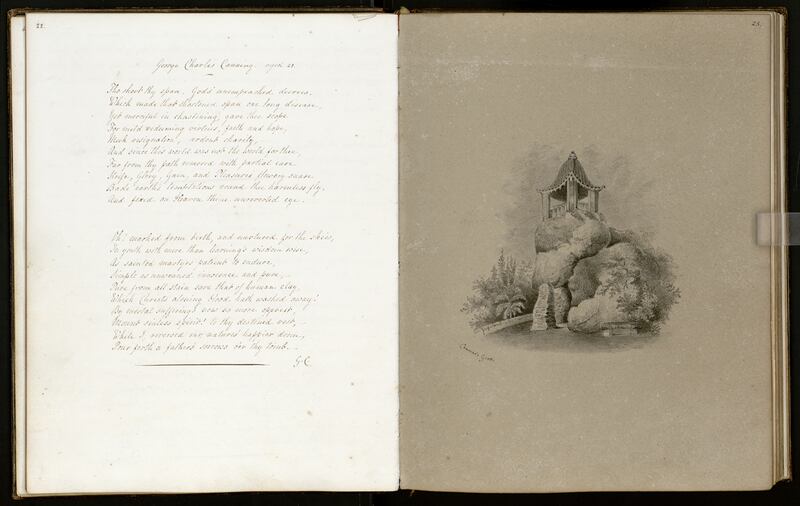 22.
George Charles Canning. aged 21.
Tho short thy span, Gods' unimpeached decrees,
Which made that shortened span one long disease,
Yet merciful in chastening, gave thee scope
For mild redeeming virtues, faith and hope,
Meek resignation, ardent charity,
And since this world was not the world for thee,
Far from thy path removed with partial care
Strife, Glory, Gain, and Pleasures flowery snare
Bade earths temptations round thee harmless fly,
And fixed on Heaven thine unreverted eye.
Oh! marked from birth, and nurtured for the skies,
In youth with more than learning's wisdom wise,
As sainted martyrs patient to endure,
Simple as unweaned innocence and pure,
Pure from all stain save that of human clay,
Which Christs atoning blood hath washed away!
By mortal sufferings now no more oppress't
Mount sinless spirit! to thy destined rest,
While I, reversed our natures' happier doom,
Pour forth a fathers sorrows o'er thy tomb.
G.C.
23.
Camoens Grotto